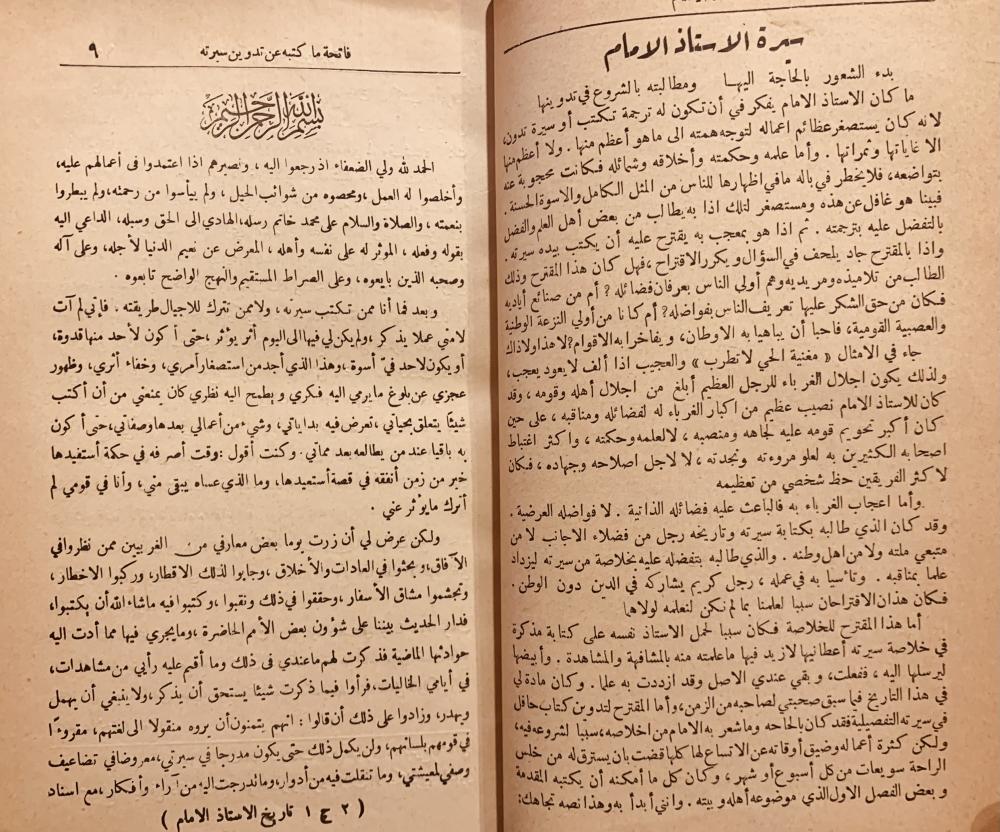 سيرة الاستاذ الامام
بدء الشعور بالحاجة اليها ومطالبته بالشروع في تدوينها
ما كان الاستاذ الامام يفكر في أن تكون له ترجمة تكتب أو سيرة تدون،
لانه كان يستصغر عظائم اعماله لتوجه همته الى ما هو أعظم منها . ولا أعظم منها
الا غاياتها وثمراتها . وأما علمه وحكمته وأخلاقه وشمائله فكانت محجوبة عنه
بتواضعه، فلا يخطر في باله ما في اظهارها للناس من المثل الكامل والاسوة الحسنة .
فبينا هو غافل عن هذه ومستصغر لتلك اذا به يطالب من بعض أهل العلم والفضل
بالتفضل عليه بترجمته . ثم اذا هو بمعجب به يقترح عليه أن يكتب بيده سيرته .
واذا بالمقترح جاد يلحف في السؤال ويكرر الاقتراح ، فهل كان هذا المقترح وذلك
الطالب من تلاميذه ومريديه وهم أولي الناس بعرفان فضائله ? أم من صنائع أياديه
فكان من حق الشكر عليها تعريف الناس بفواضله? أم كانا من أولي النزعة الوطنية
والعصبية القومية، فأحبا أن يباهيا به الاوطان، ويفاخرا به الاقوام? لا هذا ولا ذاك
جاء في الامثال « مغنية الحي لا تطرب » والعجيب اذا ألف لا يعود يعجب،
ولذلك يكون اجلال الغرباء للرجل العظيم أبلغ من اجلال أهله وقومه ، وقد
كان للاستاذ الامام نصيب عظيم من اكبار الغرباء له لفضائله ومناقبه ، على حين
كان أكبر تحويم قومه عليه لجاهه ومنصبه ، لا لعلمه وحكمته ، واكثر اغتباط
اصحابه الكثيرين به لعلو مروءته ونجدته ، لا لاجل اصلاحه وجهاده ، فكان
لاكثر الفريقين حظ شخصي من تعظيمه
وأما اعجاب الغرباء به فالباعث عليه فضائله الذاتية . لا فواضله العرضية .
وقد كان الذي طالبه بكتابة سيرته وتاريخه رجل من فضلاء الاجانب لا من
متبعي ملته ولا من اهل وطنه . والذي طالبه بتفضله عليه بخلاصة من سيرته ليزداد
علما بمناقبه . وتأسيا به في عمله ، رجل كريم يشاركه في الدين دون الوطن .
فكان هذان الاقتراحان سببا لعلمنا بما لم نكن لنعلمه لولاها
أما هذا المقترح للخلاصة فكان سببا لحمل الاستاذ نفسه على كتابة مذكرة
في خلاصة سيرته أعطانيها لازيد فيها ما علمته منه بالمشافهة والمشاهدة . وأبيضها
ليرسلها اليه ، ففعلت، وبقي عندي الاصل وقد ازددت به علما . وكان مادة لي
في هذا التاريخ فيما سبق صحبتي لصاحبه من الزمن، وأما المقترح لتدوين كتاب حافل
في سيرته التفصيلية فقد كان بالحاحه وما شعر به الامام من اخلاصه، سببا لشروعه فيه،
ولكن كثرة أعماله وضيق أوقاته عن الاتساع لها كلها قضت بان يسترق له من خلس
الراحة سويعات من كل أسبوع أو شهر ، وكان كل ما أمكنه أن يكتبه المقدمة
وبعض الفصل الاول الذي موضوعه أهله وبيته . وانني أبدأ به وهذا نصه تجاهك:
فاتحة ما كتبه عن تدوين سيرته
٩
بسم الله الرحمن الرحيم
الحمد لله ولي الضعفاء اذ رجعوا اليه ، ونصيرهم اذا اعتمدوا في أعمالهم عليه،
وأخلصوا له العمل ، ومحصوه من شوائب الحيل ، ولم ييأسوا من رحمته، ولم يبطروا
بنعمته ، والصلاة والسلام على محمد خاتم رسله، الهادي الى الحق وسبله، الداعي اليه
بقوله وفعله ، الموثر له على نفسه وأهله ، المعرض عن نعيم الدنيا لأجله، وعلى آله
وصحبه الذين بايعوه، وعلى الصراط المستقيم والنهج الواضح تابعوه .
وبعد فما أنا ممن تكتب سيرته ، ولا ممن تترك للاجيال طريقته . فاني لم آت
لامتي عملا يذكر ، ولم يكن لي فيها الى اليوم أثر يؤثر ، حتى أكون لأحد منها قدوة،
أو يكون لاحد فيّ أسوة ، وهذا الذي أجد من استصغار أمري، وخفاء أثري، وظهور
عجزي عن بلوغ ما يرمي اليه فكري و يطمح اليه نظري كان يمنعني من أن أكتب
شيئا يتعلق بحياتي ، تعرض فيه بداياتي، وشيء من أعمالي بعدها وصفاتي ، حتى أكون
به باقيا عند من يطالعه بعد مماتي . وكنت أقول : وقت أصرفه في حكمة أستفيدها
خير من زمن أنفقه في قصة أستعيدها، وما الذي عساه يبقى مني، وأنا في قومي لم
أترك ما يؤثر عني .
ولكن عرض لي أن زرت يوما بعض معارفي من الغربيين ممن نظروا في
الآفاق، وبحثوا في العادات والأخلاق ، وجابوا لذلك الاقطار، وركبوا الاخطار،
وتجشموا مشاق الأسفار ، وحققوا في ذلك ونقبوا ، وكتبوا فيه ما شاء الله أن يكتبوا،
فدار الحديث بيننا على شؤون بعض الأمم الحاضرة ، وما يجري فيها مما أدت اليه
حوادثها الماضية فذكرت لهم ما عندي في ذلك وما أقيم عليه رأيي من مشاهدات،
في أيامي الخاليات، فرأوا فيما ذكرت شيئا يستحق أن يذكر ، ولا ينبغي أن يهمل
ويهدر، وزادوا على ذلك أن قالوا : انهم يتمنون أن يروه منقولا الى لغتهم، مقروءا
في قومهم بلسانهم، ولن يكمل ذلك حتى يكون مدرجا في سيرتي، معروضا في تضاعيف
وصفي لمعيشتي، وما تنقلت فيه من أدوار، وما تدرجت اليه من آراء وأفكار ، مع اسناد
( ٢ ج ١ تاريخ الاستاذ الامام )